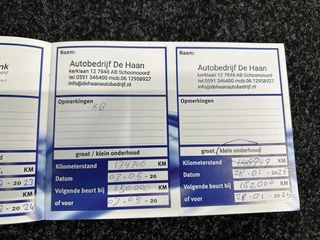 Naam:
Autobedrijf De Haan
kerklaan 12 7848 AB Schoonoord
tel.0591 346400 mob.06 12958927
info@dehaanautobedrijf.nl
Opmerkingen
groot / klein onderhoud
Kilometerstand KM
Datum 03-05-20
Volgende beurt bij 150000 KM
of voor 03-05-20
Naam:
Autobedrijf De Haan
kerklaan 12 7848 AB Schoonoord
tel.0591 346400 mob.06 12958927
info@dehaanautobedrijf.nl
Opmerkingen
groot / klein onderhoud
Kilometerstand KM
Datum 28-01-2025
Volgende beurt bij 162000 KM
of voor 28-01-202
KM
20 23
KM
20 24